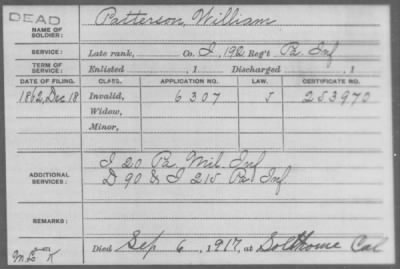 DEAD
NAME OF SOLDIER: Patterson, William
SERVICE: Late rank, Co. I, 192 Reg't Pa. Inf
TERM OF SERVICE: Enlisted , 1 Discharged , 1
DATE OF FILING. CLASS. APPLICATION NO. LAW. CERTIFICATE NO.
1862, Dec 18 Invalid, 6307 J 253973
Widow,
Minor,
ADDITIONAL SERVICES: I 20 Pa. Mil. Inf
D 90 & I 215 Pa Inf
REMARKS:
Died Sep 6, 1917, at Cal